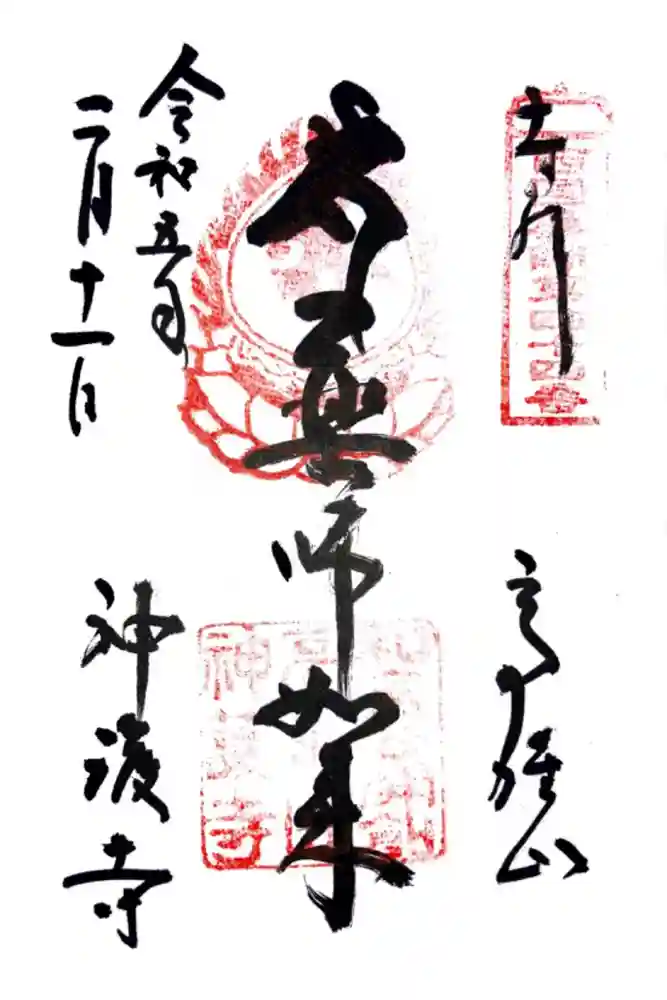 奉拝
高雄山
薬師如来
令和五年
二月十一日
神護寺